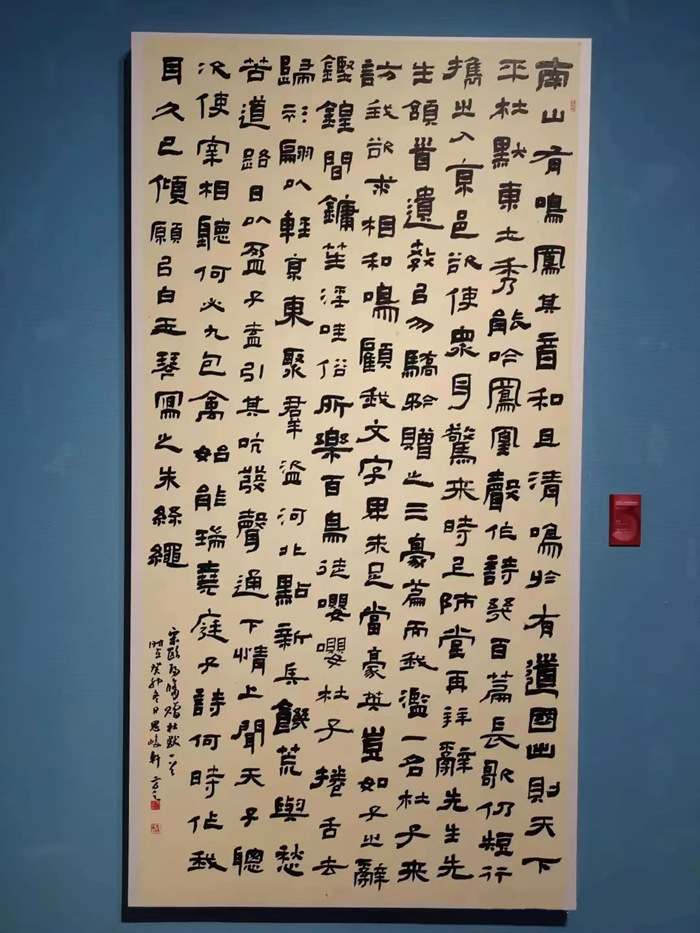 南山有鳴鳳其音和且清鳴於有道國出則天下
平杜默東土秀能吟鳳凰聲作詩幾百篇長歌仍短行
攜之入京邑欲使衆耳驚來時上師堂再拜辭先生先
生頷首遣教以勿驕矜贈之三豪篇而我濫一名杜子來
訪我欲求相和鳴顧我文字卑未足當豪英豈如子之辭
鏗鍠間鏞笙淫哇俗所樂百鳥徒嚶嚶杜子捲舌去
歸衫翩以輕京東聚羣盜河北點新兵饑荒與愁
苦道路日以盈子盍引其吭發聲通下情上聞天子聰
次使宰相聽何必九包禽始能瑞堯庭子詩何時作我
耳久已傾願以白玉琴寫之朱絲繩
宋歐陽脩贈杜默一首
癸卯冬日思峻軒